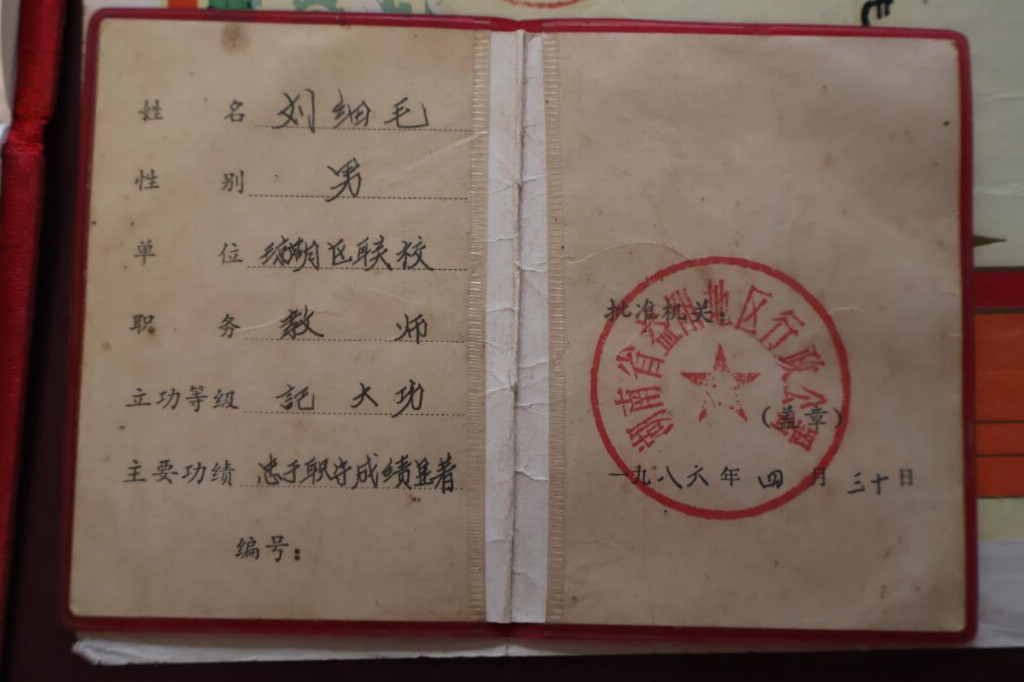 姓名 刘细毛
性别 男
单位 琼湖区联校
职务 教师
立功等级 記大功
主要功绩 忠于职守成绩显著
编号：
批准机关：
湖南省益阳地区行政公署
（盖章）
一九八六年四月三十日